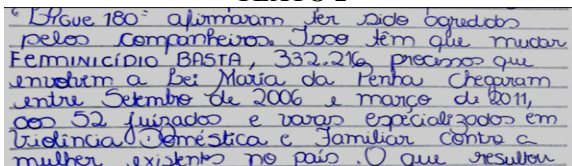 "Ligue 180" afirmaram ter sido agredidos
pelos companheiros. Isso têm que mudar
FEMINICÍDIO BASTA, 332.216, processos que
envolvem a Lei Maria da Penha chegaram
entre Setembro de 2006 e março de 2011,
aos 52 juizados e varas especializados em
Violência Doméstica e Familiar contra a
mulher existentes no país. O que resultou